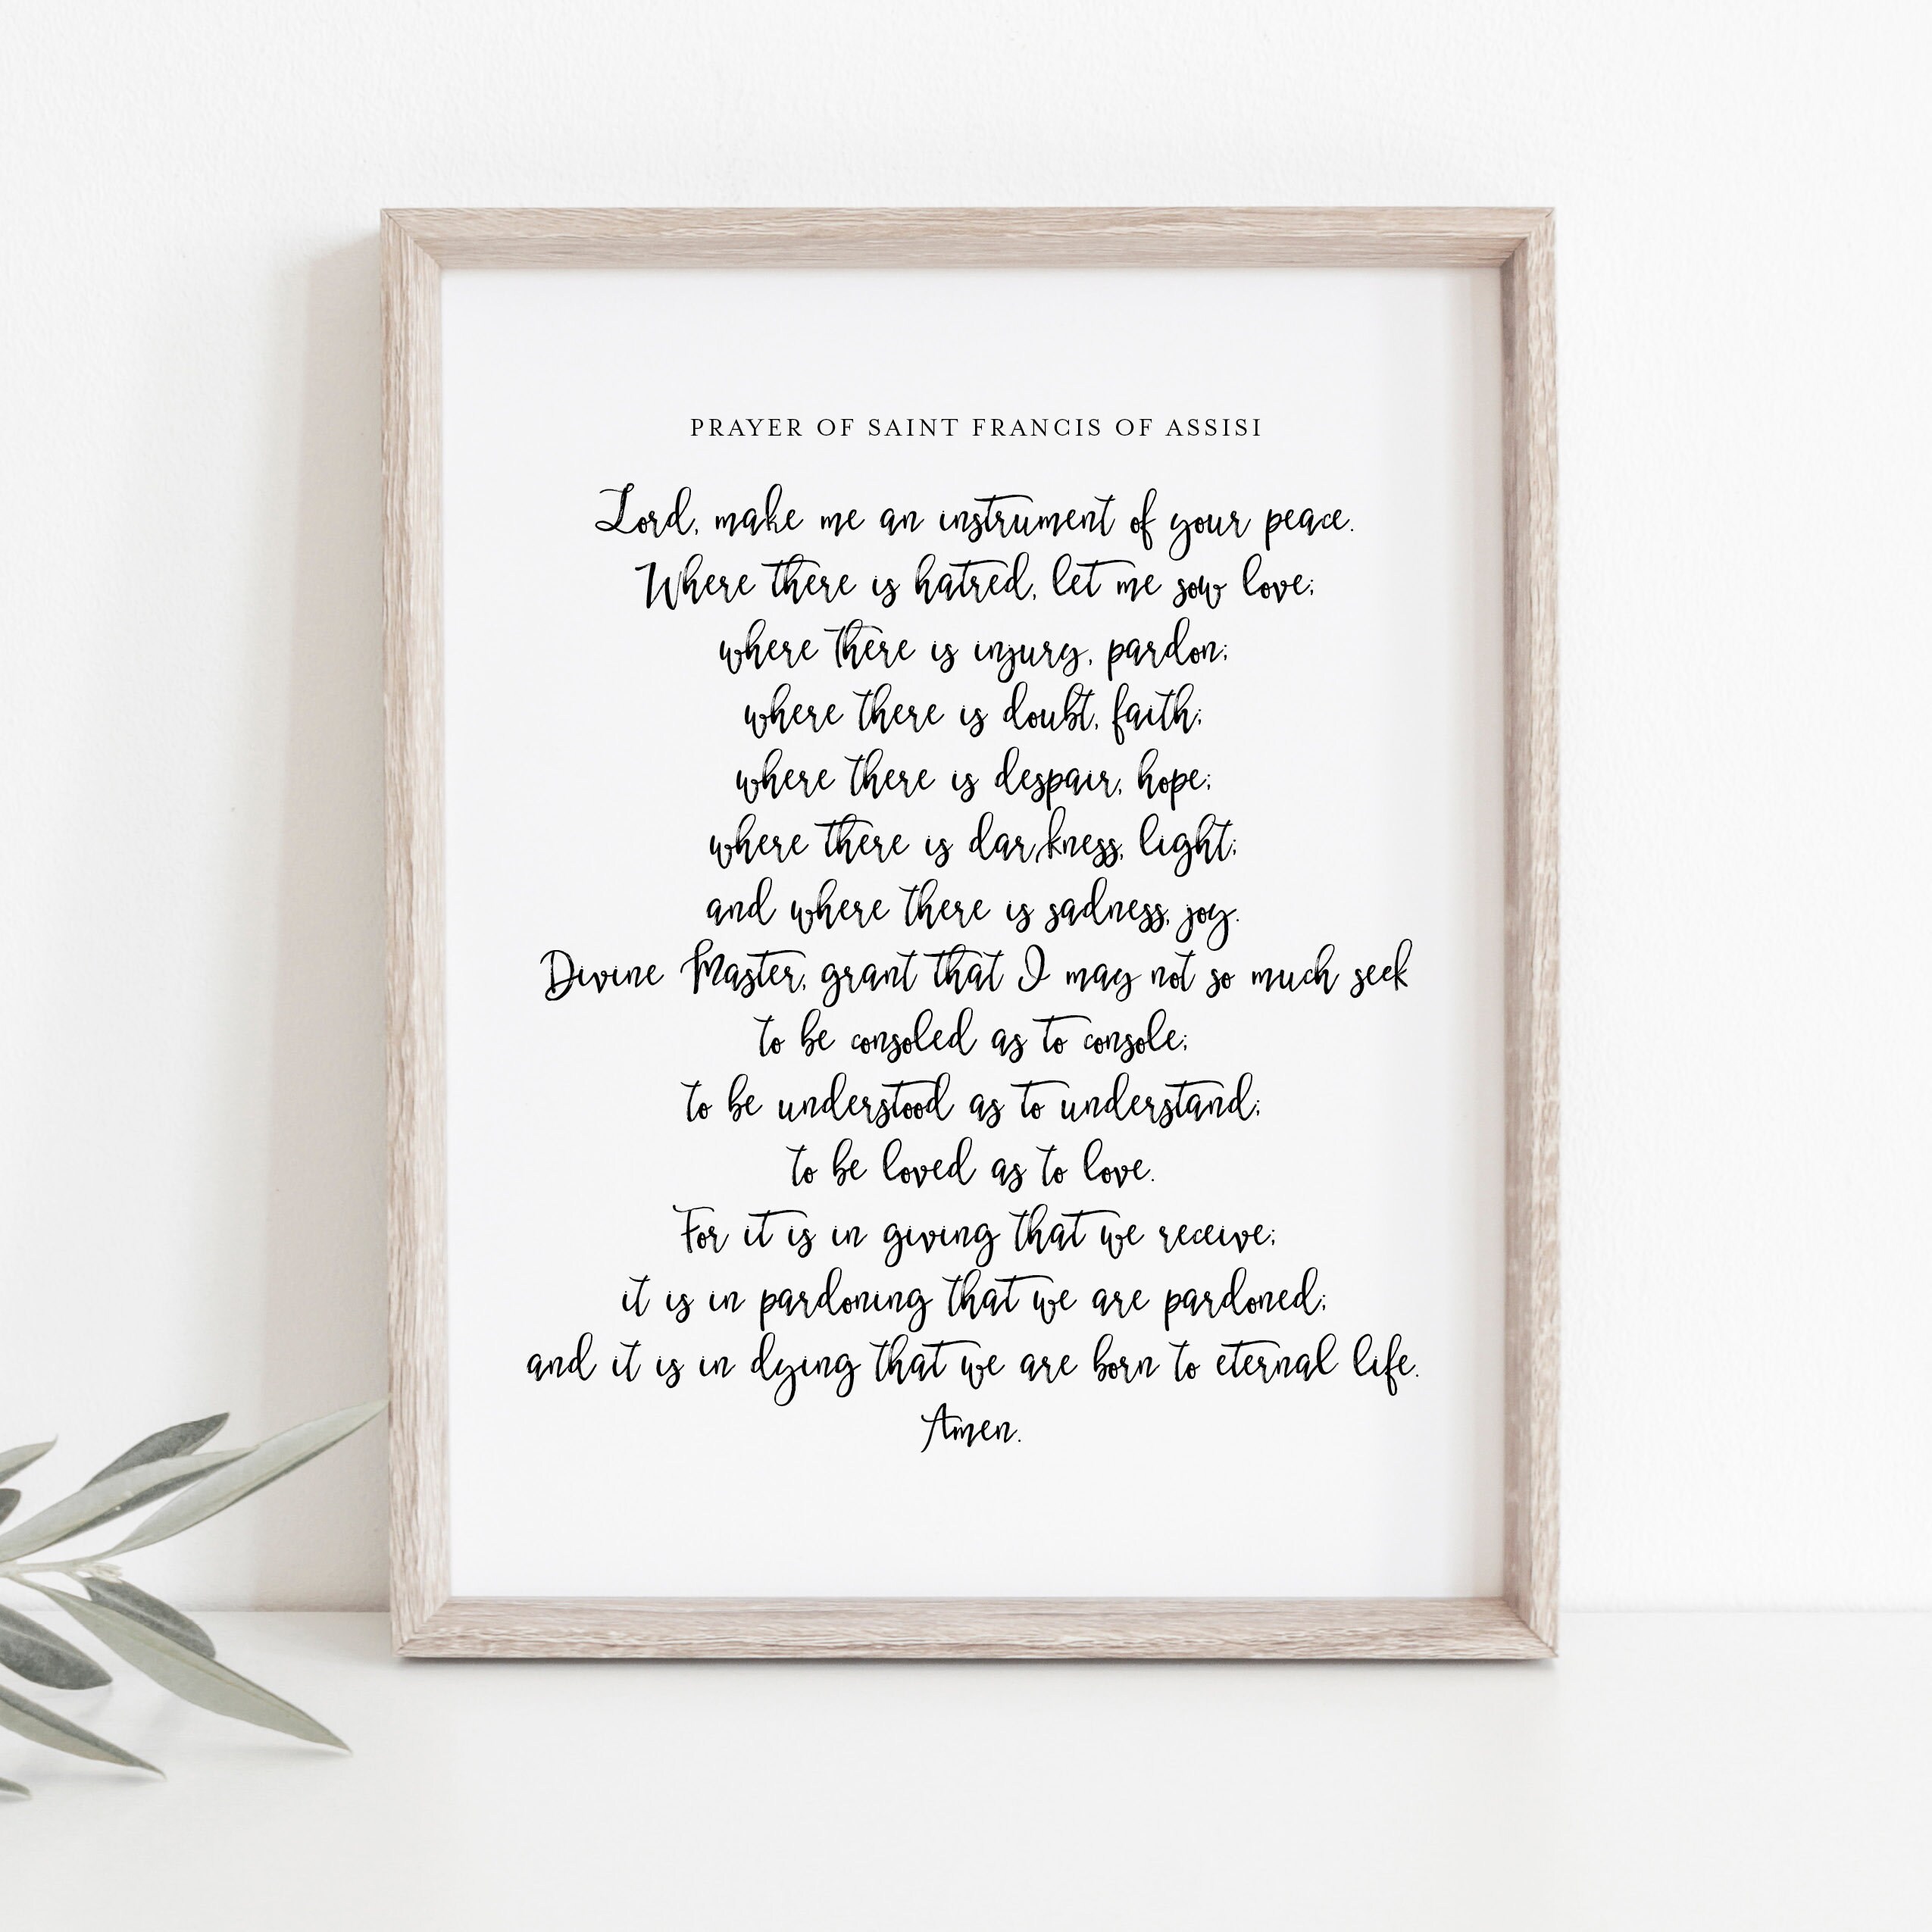 PRAYER OF SAINT FRANCIS OF ASSISI
Lord, make me an instrument of your peace.
Where there is hatred, let me sow love;
where there is injury, pardon;
where there is doubt, faith;
where there is despair, hope;
where there is darkness, light;
and where there is sadness, joy.
Divine Master, grant that I may not so much seek
to be consoled as to console;
to be understood as to understand;
to be loved as to love.
For it is in giving that we receive;
it is in pardoning that we are pardoned;
and it is in dying that we are born to eternal life.
Amen.